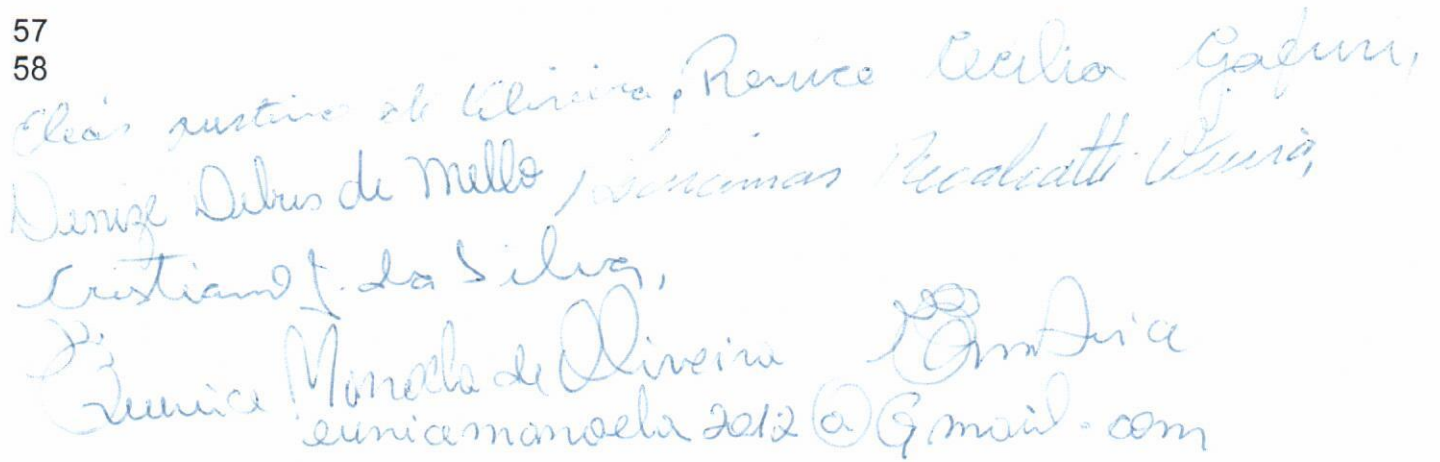 57
58
Elias Justino de Oliveira, Renice Cecilia Gafuri,
Denize Debus de Mello, Recalcatti Vieira,
Cristiano J. da Silva,
Eunice Manoela de Oliveira
eunicemanoela2012@Gmail.com